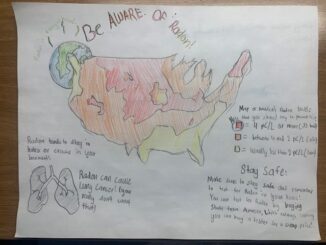 Be AWARE of: Radon!
Radon
Radon tends to stay in
holes or cracks in your
basement.
Radon can cause
lung cancer! (you
really don't want
that)
Map of America's Radon levels
= 4 pCi/L or more
= between 2 and 4 pCi/L
= usually less than 2 pCi/L
Stay Safe:
Make sure to stay safe and remember
to test for Radon in your home!
You can test for Radon by buying
you can buy a tester for a cheap price!